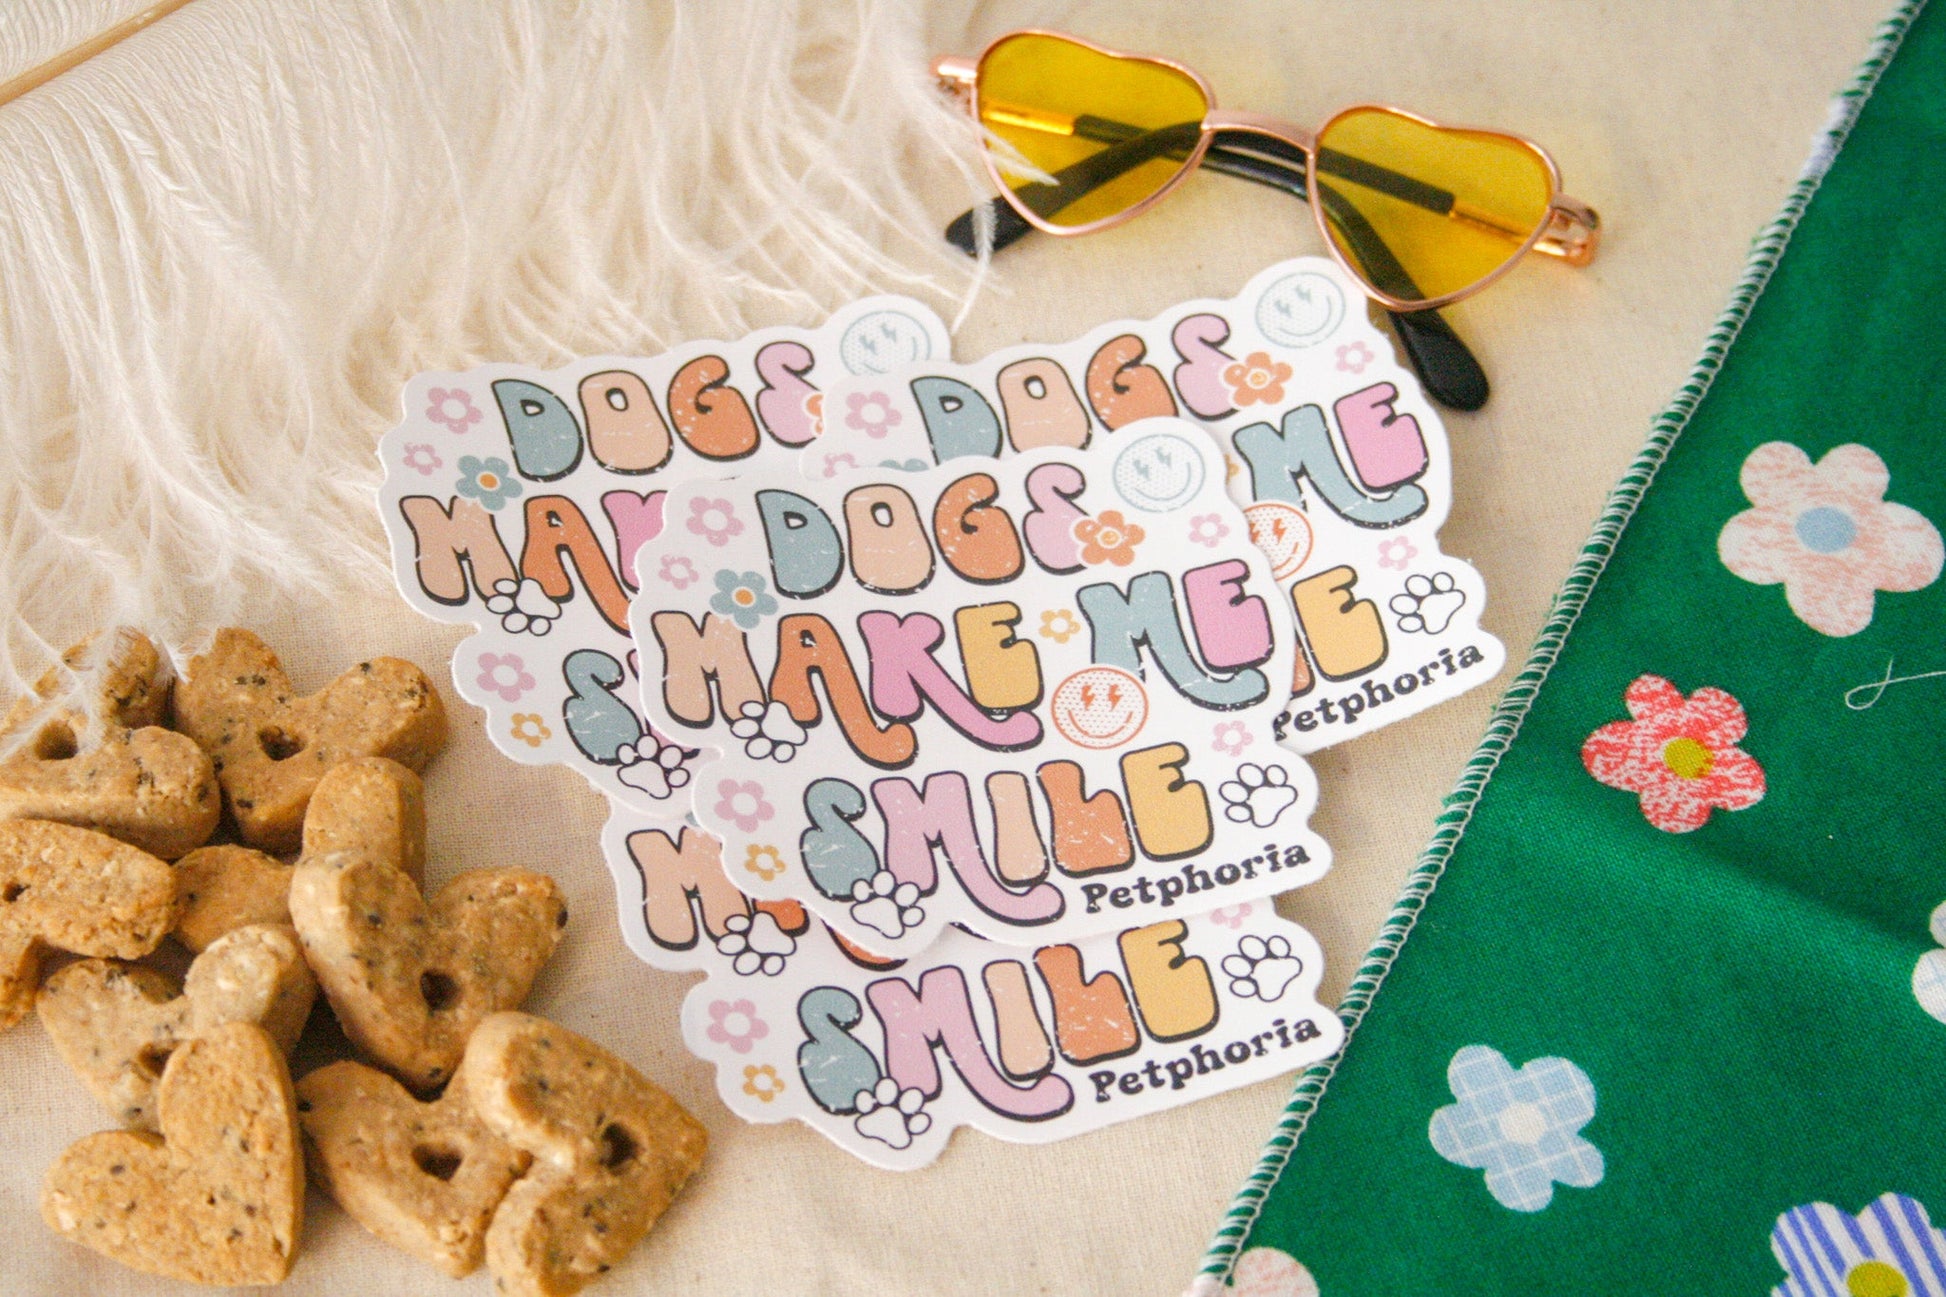 DOGS
MAK
S
DOGS
ME
E
Petphoria
DOGS
MAKE ME
SMILE
Petphoria
MA
SMILE
Petphoria